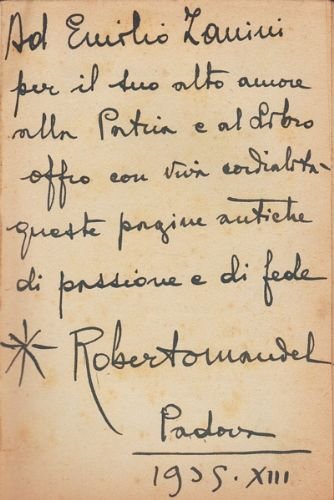 Ad Emilio Zanini
per il suo alto amore
alla Patria e al Libro
offro con viva cordialità
queste pagine antiche
di passione e di fede
Robertomandel
Padova
1935. XIII